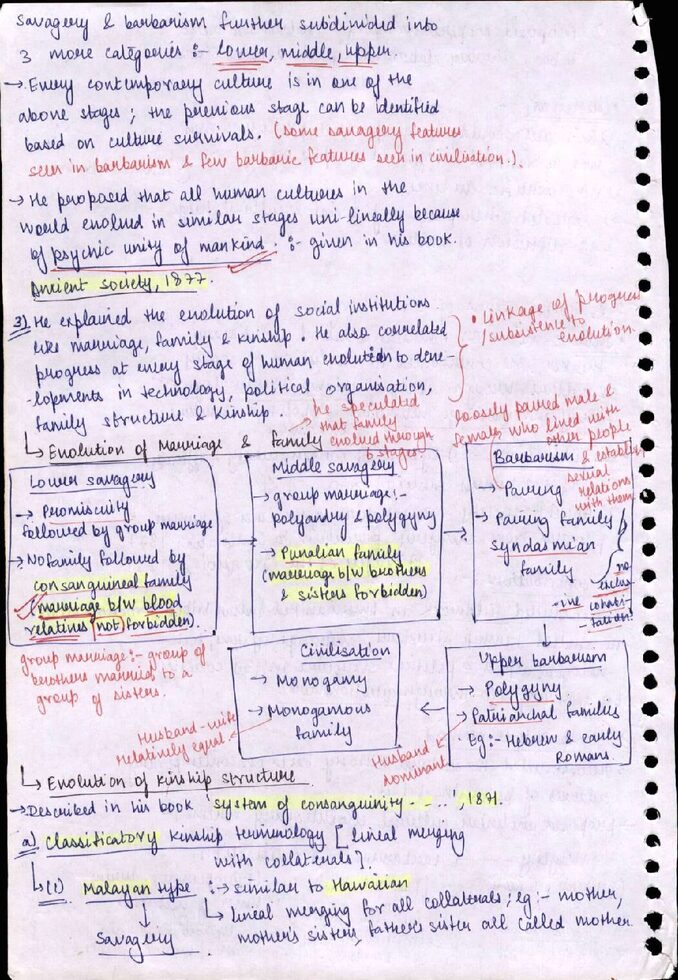 Savagery & barbarism further subdivided into
3 more categories :- lower, middle, upper.
→ Every contemporary culture is in one of the
above stages ; the previous stage can be identified
based on culture survivals. (some savagery features
seen in barbarism & few barbaric features seen in civilisation.).
→ He proposed that all human cultures in the
would evolved in similar stages uni-lineally because
of psychic unity of mankind. :- given in his book.
Ancient society, 1877.
3) He explained the evolution of social institutions
like marriage, family & kinship. He also correlated
progress at every stage of human evolution to deve-
-lopments in technology, political organisation,
family structure & kinship
• linkage of progress
/subsistence to
evolution.
→ he speculated
that family
evolved through
5 stages.
loosely paired male &
female who lived with
other people
& establish
sexual
relations
with them
↳ Evolution of Marriage & family
Lower savagery
→ Promiscuity
followed by group marriage
→ No family followed by
consanguineal family
(marriage b/w blood
relatives not forbidden).
group marriage :- group of
brothers married to a
group of sisters.
Middle savagery
→ group marriage :-
polyandry & polygyny
→ Punaluan family
(marriage b/w brothers
& sisters forbidden)
Barbarism
→ Pairing
→ Pairing family
syndasmian
family
no
exclus-
-ive cohabi-
-tation.
Upper barbarism
→ Polygyny
→ Patriarchal families
• Eg :- Hebrew & early
Romans.
Husband
dominant
Civilisation
→ Monogamy
→ Monogamous
family
Husband-wife
relatively equal
↳ Evolution of kinship structure
→ Described in his book 'system of consanguinity - - ..', 1871.
a) Classificatory kinship terminology [lineal merging
with collaterals].
↳ (1) Malayan type :→ similar to Hawaiian
↳ lineal merging for all collaterals; eg :- mother,
mother's sister, father's sister all called mother.
↓
Savagery